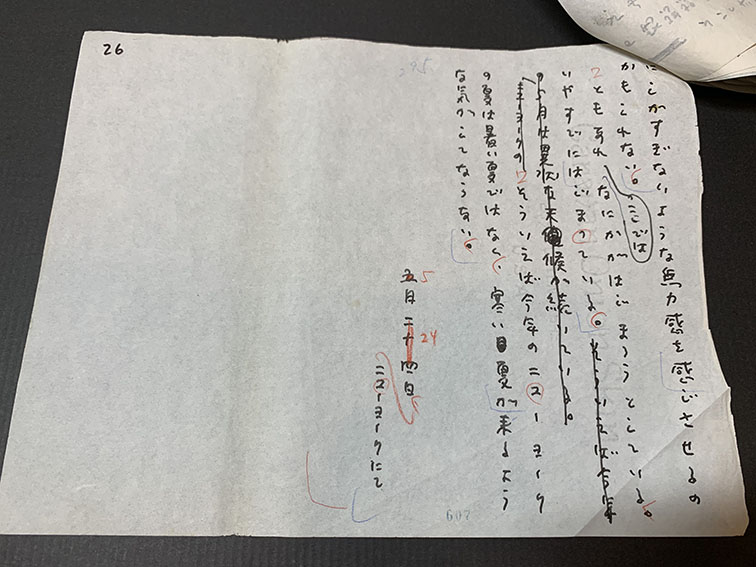 26
にしかすぎないような無力感を感じさせるの
かもしれない。
ともあれ、ここではなにかがはじまろうとしている。
いやすでにはじまっている。そういえば今年
の五月は異状な天候が続いている。
ニューヨークの そういえば今年のニューヨーク
の夏は暑い夏ではなく、寒い夏が来るよう
な気がしてならない。
五月二十四日
5
24
ニューヨークにて
607